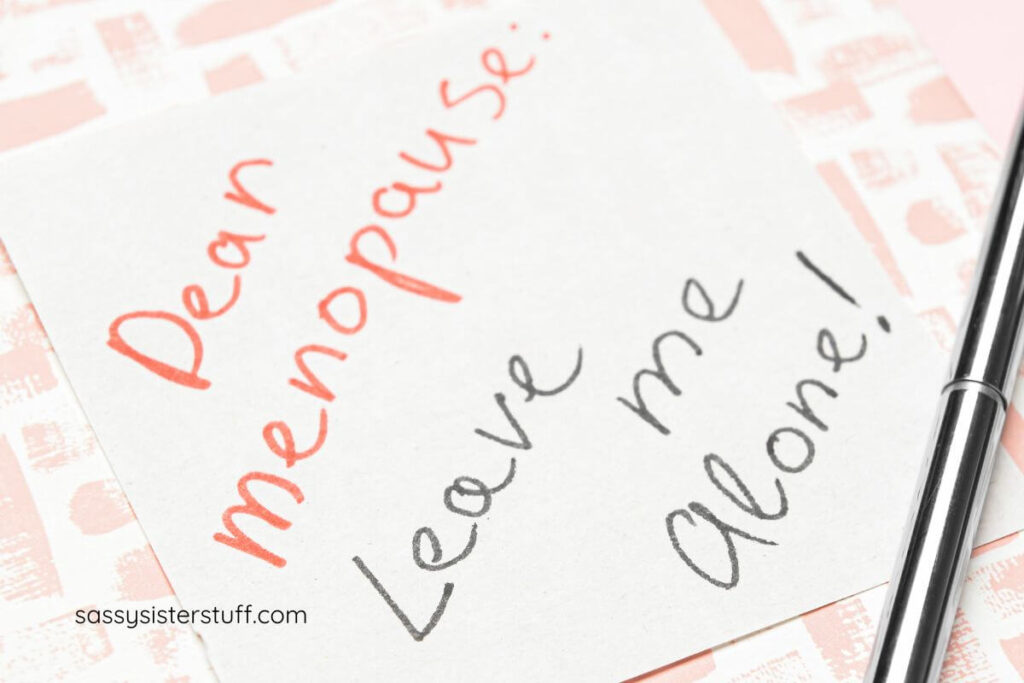 Dear
menopause:
Leave
me
alone!
sassysisterstuff.com